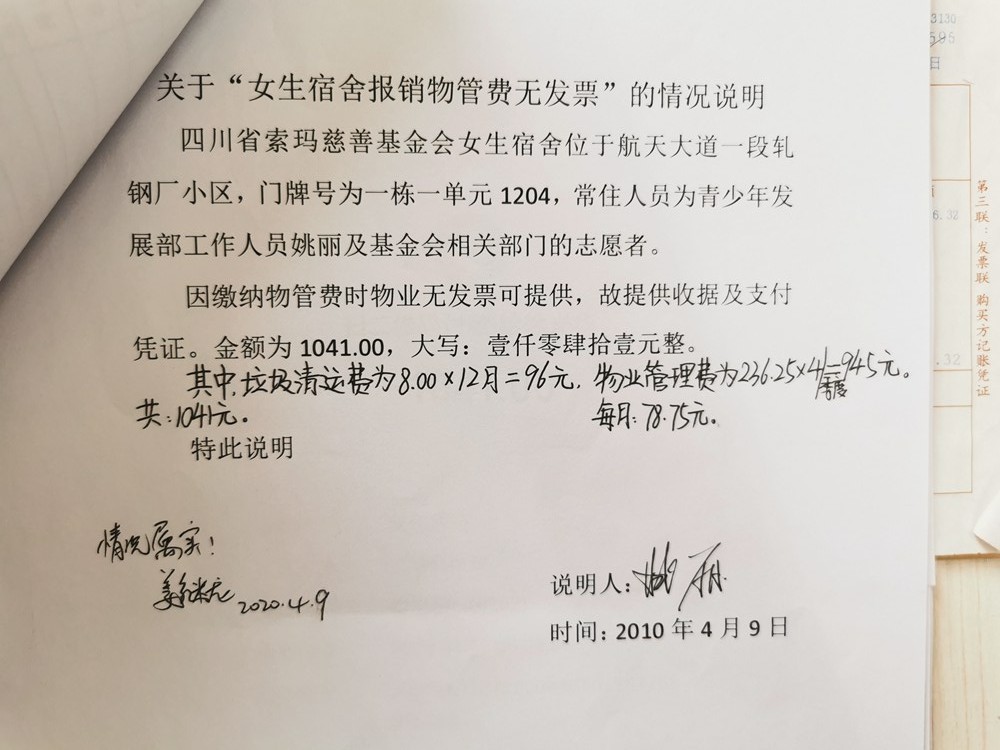 关于“女生宿舍报销物管费无发票”的情况说明
四川省索玛慈善基金会女生宿舍位于航天大道一段轧
钢厂小区，门牌号为一栋一单元 1204，常住人员为青少年发
展部工作人员姚丽及基金会相关部门的志愿者。
因缴纳物管费时物业无发票可提供，故提供收据及支付
凭证。金额为 1041.00，大写：壹仟零肆拾壹元整。
其中，垃圾清运费为8.00×12月=96元，物业管理费为236.25×4季度=945元。
共：1041元。
每月：78.75元。
特此说明
情况属实！
2020.4.9
说明人：姚丽
时间：2010 年 4 月 9 日
3130
595
日
6.32
.32
第三联：发票联 购买方记账凭证